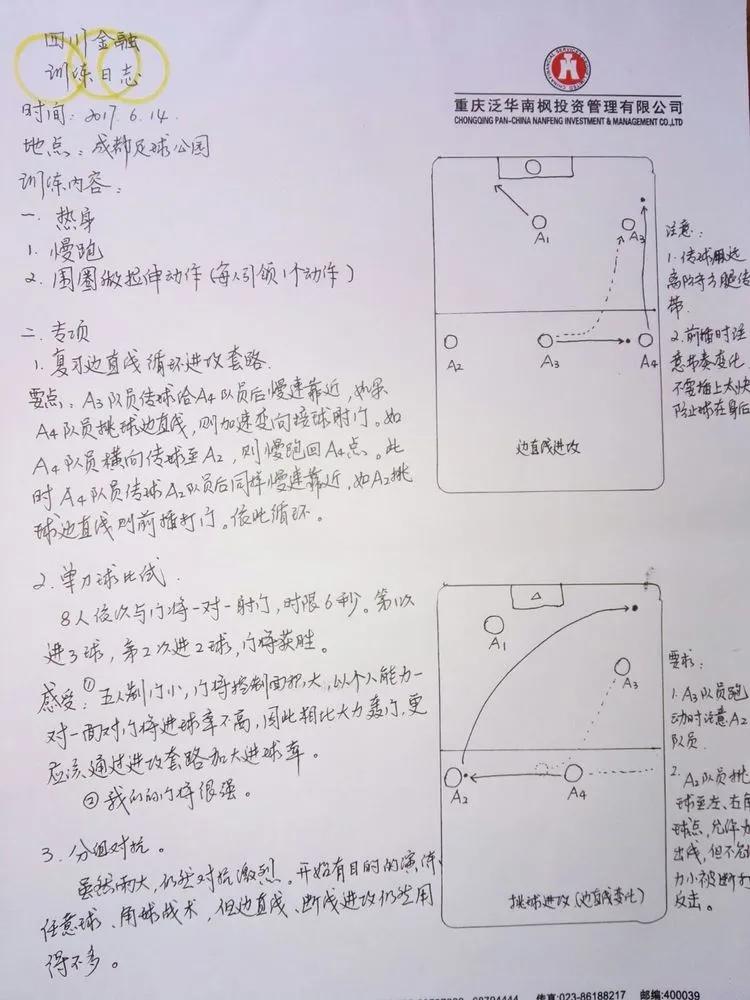 四川金融
训练日志
重庆泛华南枫投资管理有限公司
CHONGQING PAN-CHINA NANFENG INVESTMENT & MANAGEMENT CO.,LTD
时间：2017.6.14.
地点：成都足球公园
训练内容：
一、热身
1. 慢跑
2. 围圈做拉伸动作（每人引领1个动作）
二、专项
1. 复习边直线循环进攻套路.
要点：A3队员传球给A4队员后慢速靠近，如果
A4队员挑球边直线，则加速变向接球射门。如
A4队员横向传球至A2，则慢跑回A4点。此
时A4队员传球A2队员后同样慢速靠近，如A2挑
球边直线则前插打门。依此循环。
A1
A3
A2
A3
A4
边直线进攻
注意：
1. 传球用远
离防守方腿传
带.
2. 前插时注
意节奏变化.
不要插上太快
防止球在身后
2. 单刀球比试.
8人依次与门将一对一射门，时限6秒。第1次
进3球，第2次进2球，门将获胜。
感受：①五人制门小，门将控制面积大，以个人能力一
对一面对门将进球率不高，因此相比大力轰门，更
应该通过进攻套路加大进球率。
②我们的门将很强。
3. 分组对抗。
虽然雨大，仍然对抗激烈。开始有目的的演练
任意球、角球战术，但边直线、断线进攻仍然用
得不多。
A1
A3
A2
A4
挑球进攻（边直线变化）
要求：
1. A3队员跑
动时注意A2
队员.
2. A2队员挑
球至左、右角
球点，允许力
出线，但不
力小被断打
反击。
传真:023-86188217 邮编:400039